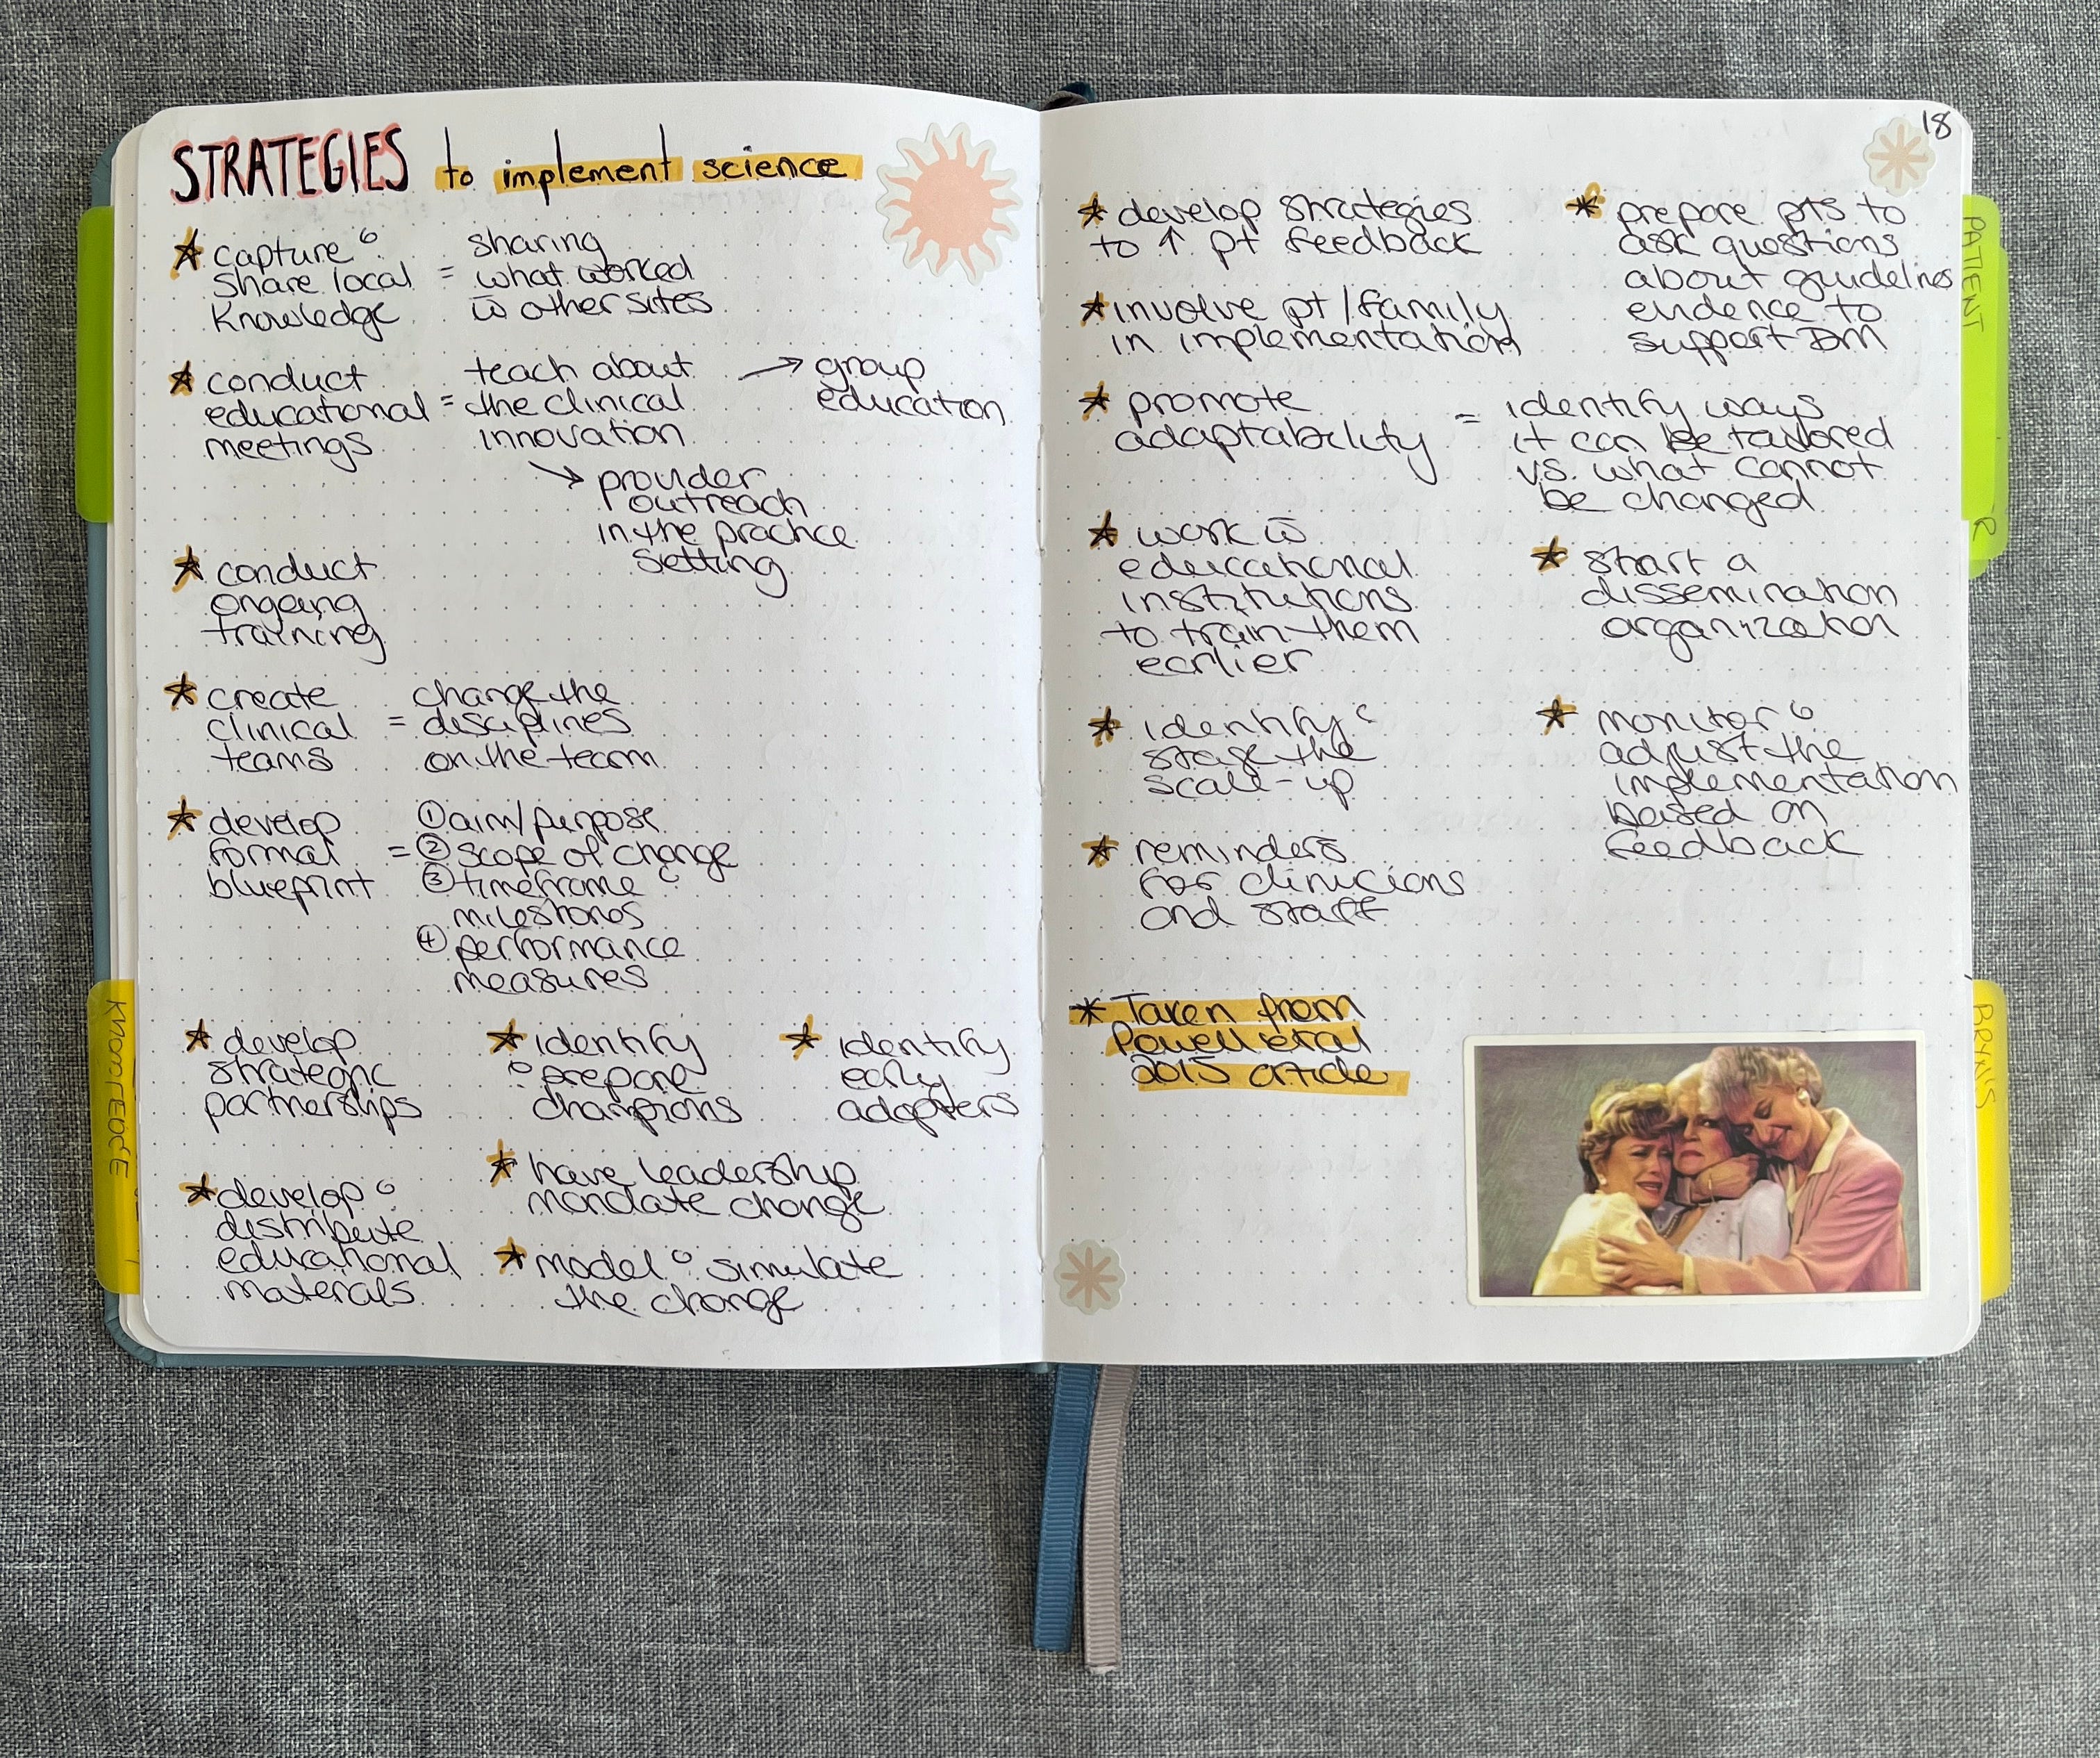 STRATEGIES to implement science
★ capture &
share local
knowledge
= sharing
what worked
w̄ other sites
★ conduct
educational
meetings
= teach about
the clinical
innovation
→ group
education
→ provider
outreach
in the practice
setting
★ conduct
ongoing
training
★ create
clinical
teams
= change the
disciplines
on the team
★ develop
formal
blueprint
= ① aim/purpose
② scope of change
③ timeframe &
milestones
④ performance
measures
★ develop
strategic
partnerships
★ identify
& prepare
champions
★ identify
early
adopters
★ develop &
distribute
educational
materials
★ have leadership
mandate change
★ model & simulate
the change
18
★ develop strategies
to ↑ pt feedback
★ prepare pts to
ask questions
about guidelines
evidence to
support DM
★ involve pt/family
in implementation
★ promote
adaptability
= identify ways
it can be tailored
vs. what cannot
be changed
★ work w̄
educational
institutions
to train them
earlier
★ start a
dissemination
organization
★ identify &
stage the
scale-up
★ monitor &
adjust the
implementation
based on
feedback
★ reminders
for clinicians
and staff
* Taken from
Powell et al
2015 article
PATIENT
R
KNOWLEDGE